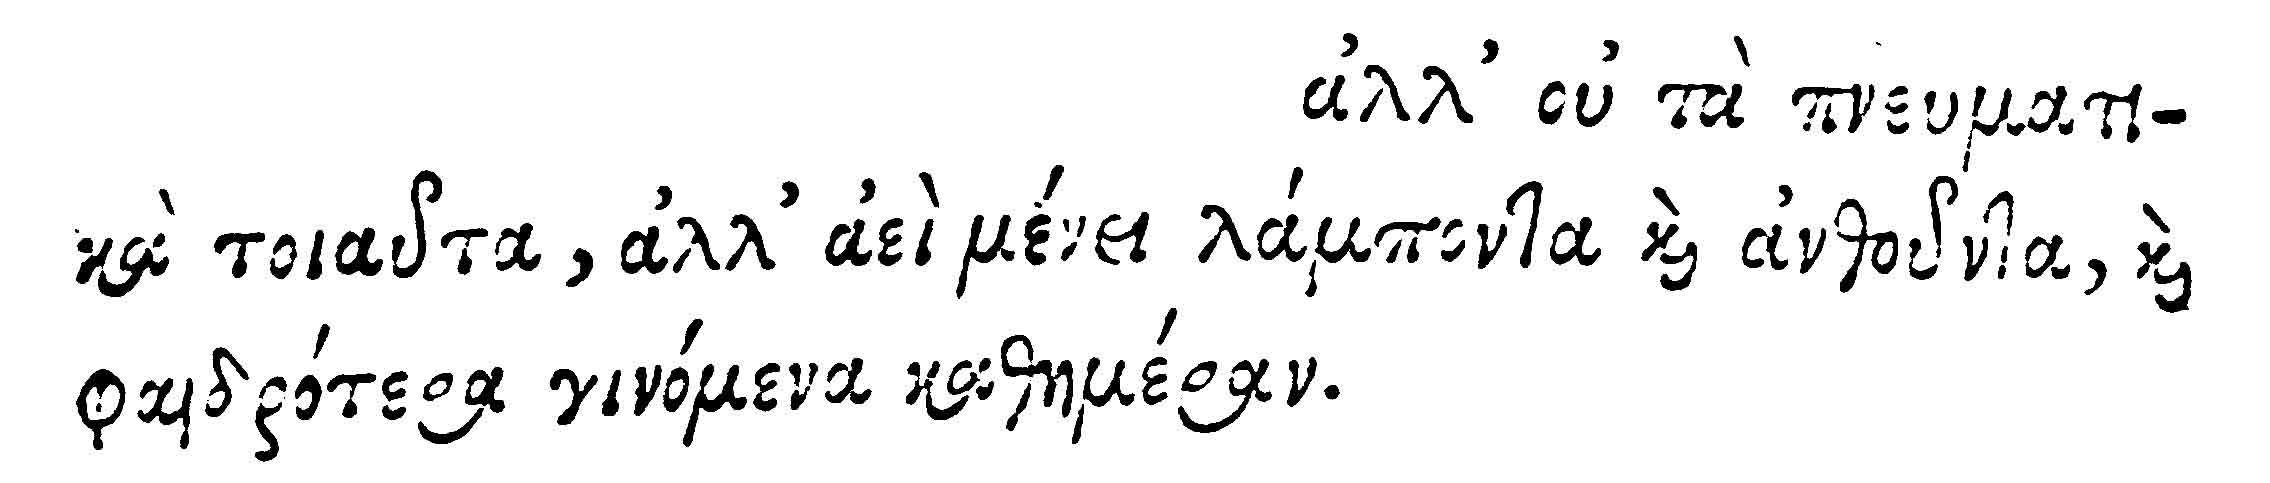 ἀλλ’ οὐ τὰ πνευματι-
κὰ τοιαῦτα, ἀλλ’ ἀεὶ μένει λάμποντα ϗ̀ ἀνθοῦντα, ϗ̀
φαιδρότερα γινόμενα καθημέραν.